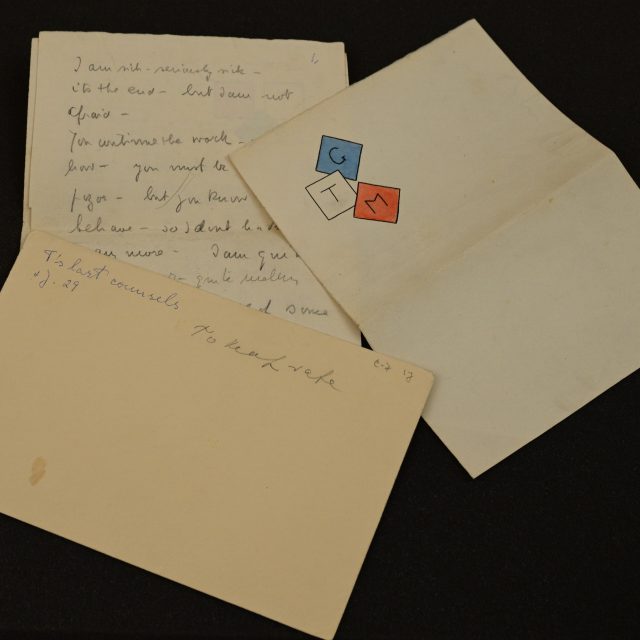 I am sick - seriously sick -
its the end - but I am not
afraid -
You continue the work -
how - you must be
but you know
behave - so I dont have
any more - I am quite
quite
some
T's last counsels
29
To read
G
T
M